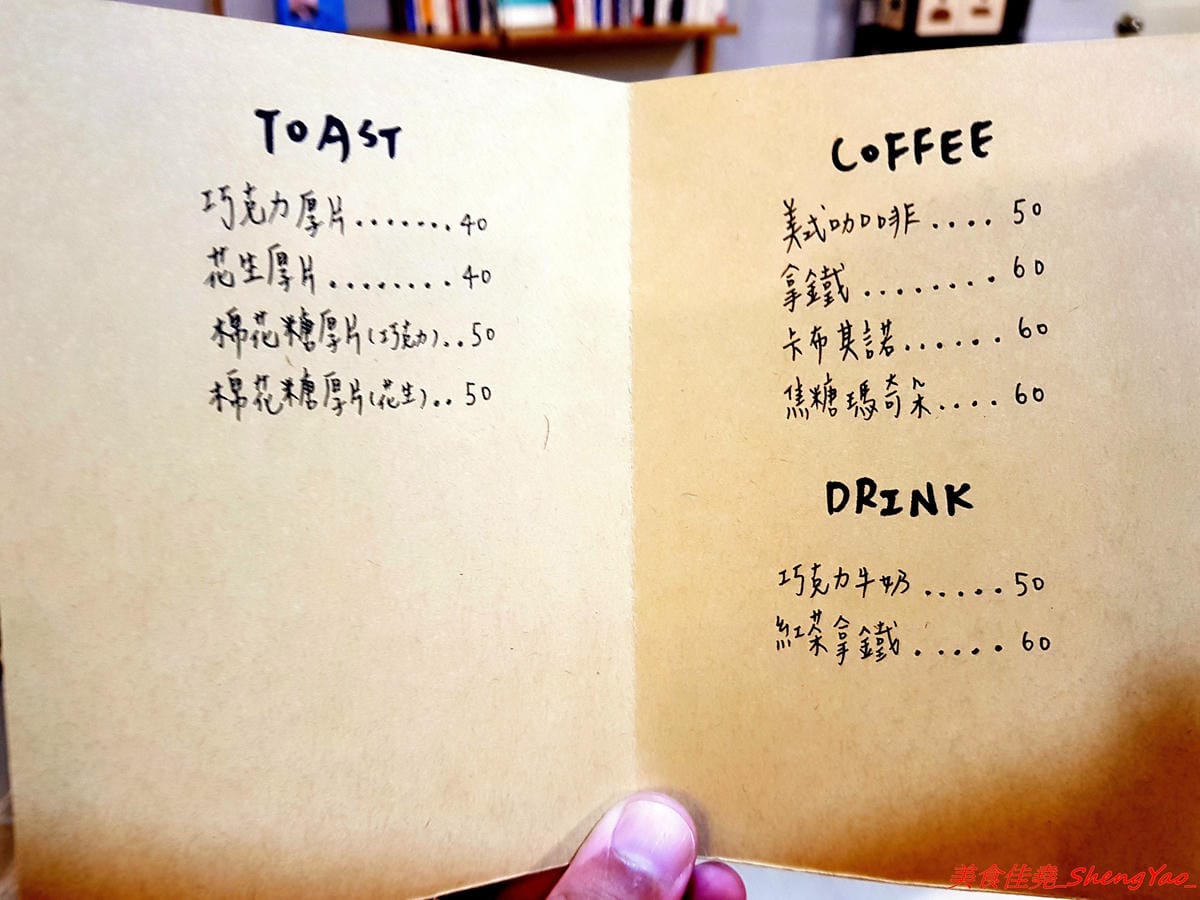 TOAST
巧克力厚片.......40
花生厚片........40
棉花糖厚片(巧克力)..50
棉花糖厚片(花生)..50
COFFEE
美式咖啡....50
拿鐵........60
卡布其諾......60
焦糖瑪奇朵....60
DRINK
巧克力牛奶.....50
紅茶拿鐵.....60
美食佳堯_ShengYao_